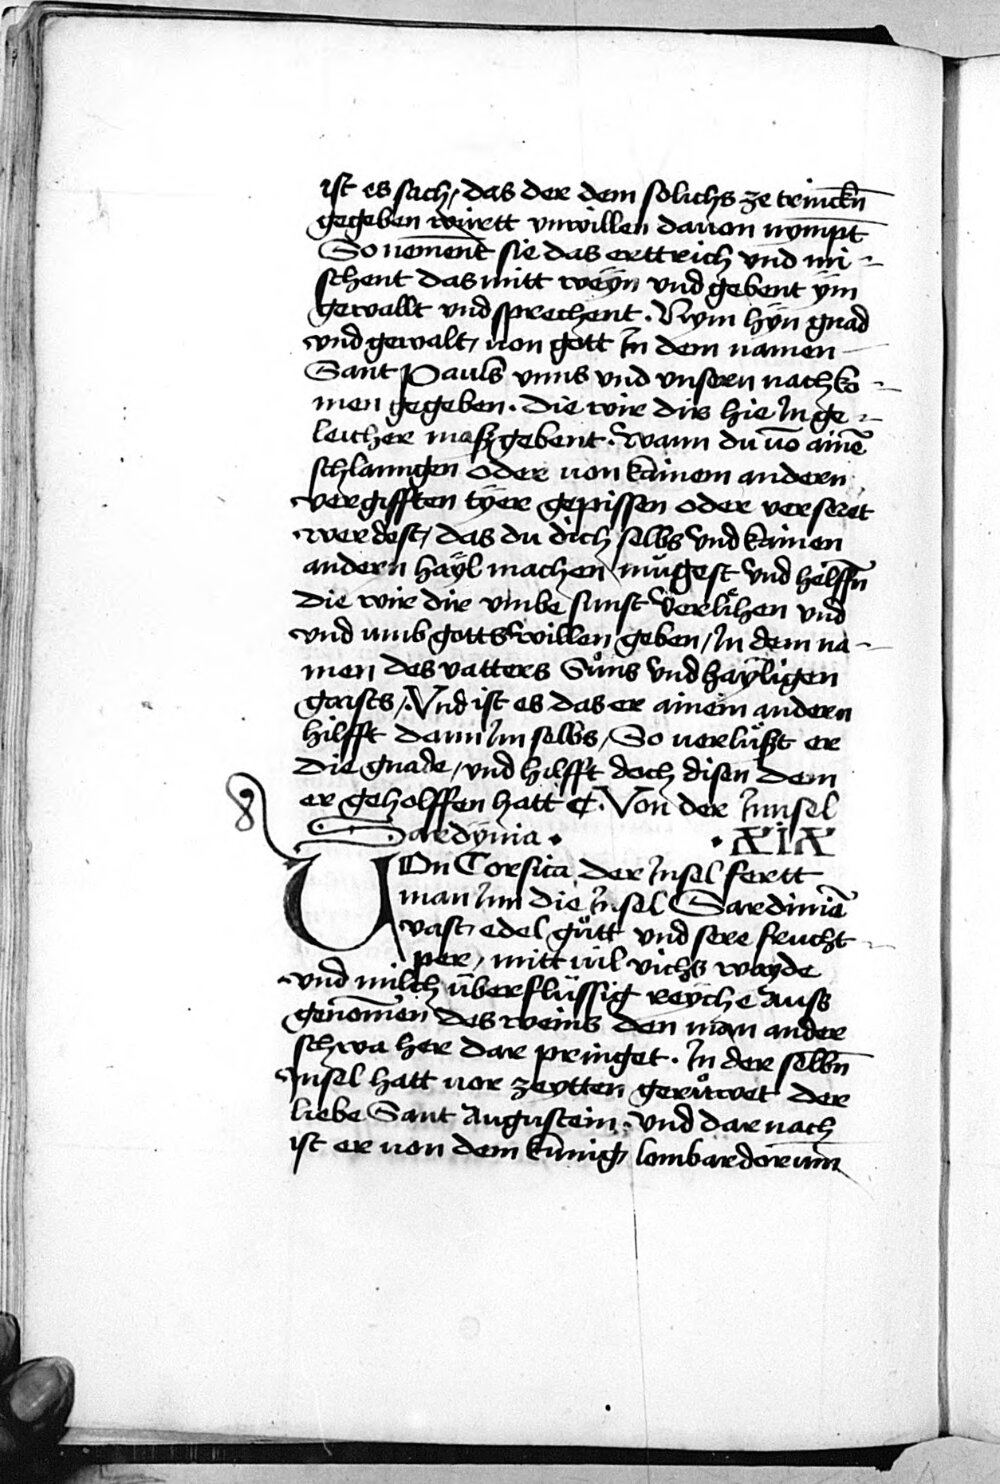 ist es sach, das der dem solichs ze trincḱn̄
gegeben württ vnwillen dauon nÿmpt
So nēment sie das erttrich vnd mi-
schent das mitt weÿn vnd gebent ÿm
gewallt vnd sprechent. Nym hÿn gnad
vnd gewalt, von gott In dem namen
Sant Pauls vnns vnd vnsern nachko-
men gegeben. die wir dir hie In ge-
leicher maß gebent. Wann du vō ainē
schlanngen oder von kainem andern
vergifften tÿer gepissen oder verseret
werdest, das du dich selbs vnd kainen
andern haÿl machen mügest vnd helffn̄
die wir dir vmbe sunst verlihen vnd
vnd umb gotts willen geben, In dem na-
men des vatters Sůns vnd haÿligen
gaists, Vnd ist es das er ainem andern
hilfft dann Im selbs, So verlüßt er
die gnade, vnd hilfft doch disen dem
er geholffen hatt ¶. Von der Innsel
Sardÿnia. . XIX
VOn Corsica der Insel fertt
man Inn die Insel Sardiniē
vast, edel gůtt vnd sere frucht-
per, mitt vil vichs wayde
vnd milch überflüssig reÿche Auss
genom̄en des weins den man ander
schwa her dar pringet. In der selbn̄
Insel hatt vor zeytten gerůwet der
liebe Sant Augustein, vnd darnach
ist er von dem künig, lombardorum